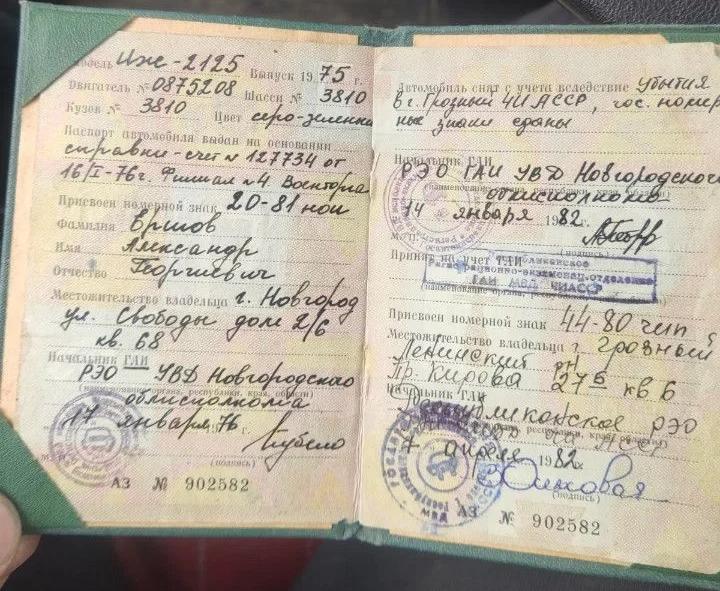 Модель Иж-2125 Выпуск 1975 г.
Двигатель № 0875208 Шасси № 3810
Кузов № 3810 Цвет серо-зелены
Паспорт автомобиля выдан на основании
справки-счет № 127734 от
16/I-76г. Филиал №4 Военторга
Присвоен номерной знак 20-81 нои
Фамилия Ершов
Имя Александр
Отчество Георгиевич
Местожительство владельца г. Новгород
ул. Свободы дом 2/6
кв. 68
Начальник ГАИ
РЭО УВД Новгородского
(наименование органа, республики, края, области)
облисполкома
17 января 1976 г.
(подпись)
АЗ № 902582
Автомобиль снят с учета вследствие убытия
в г. Грозный ЧИАССР, гос. номер
ные знаки сданы
Начальник ГАИ
РЭО ГАИ УВД Новгородского
облисполкома
14 января 1982 г.
М.П. (подпись)
Принят на учет ГАИ Республиканское
Регистрационно-экзаменац. отделение
ГАИ МВД ЧИАССР
Присвоен номерной знак 44-80 чип
Местожительство владельца г. Грозный
Ленинский рн
Пр. Кирова 275 кв 6
Начальник ГАИ
Республиканское РЭО
7 апреля 1982 г.
(подпись)
АЗ № 902582